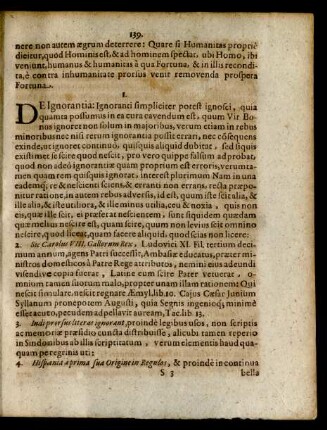 139.
nere non autem ægrum deterrere: Quare si Humanitas propriè
dicitur, quod Hominis est, & ad hominem spectat, ubi Homo, ibi
veniunt, humanus & humanitas à qua Fortuna. & in illis recondi-
ta, è contra inhumanitate prorius venit removenda prospera
Fortuna.
1.
DE Ignorantia: Ignoranti simpliciter potest ignosci, quia
quamita possumus in ea cura cavendum est, quum Vir Bo-
nus ignoret non solum in majoribus, verum etiam in rebus
minoribus nec nisi rerum ignorantia posse errari, nec ob sequens
exinde, ut ignoret continuò, quisquis aliquid dubitat, sed liquis
existimet se scire quod nescit, pro vero quippe falsum ad probat,
quod non adeo ignorantiæ quam proprium est erroris, verumta-
men quam rem quisquis ignorat, interest plurimum Nam in una
eademq; re & nescienti sciens, & erranti non errans, recta præpo-
nitur ratione, in autem rebus adversis, id est, quum iste scit alia, &
ille alia, & iste utiliora, & ille minus utilia, ceu & noxia, quis non
eis, quæ ille scit, ei præserat nescientem, sunt siquidem quædam
quæ melius nescire, est, quam scire, quum non levius scit omnino
nescire, quod licet, quam facere aliquid, quod scias non licere.
2. Sic Carolus VIII. Gallorum Rex, Ludovici XI. Fil. tertium deci-
mum annum, agens Patri successit, Ambasiæ educatus, præter mi-
nistros domesticos à Patre Rege attributos, nemini ejus adeundi
visendive copia fuerat, Latine eum scire Pater vetuerat,
omnium tamen suorum malo, propter unam illam rationem: Qui
nescit simulare, nescit regnare. Æmyl. lib. 10. Cajus Cæsar Junium
Syllanum pronepotem Augusti, quia Segnis ingenioq; minimè
esset acuto, pecudem adpellavit auream, Tac. lib. 13.
3. Indi prorsus literas ignorant, proinde legibus usos, non scriptis
ac memoriæ præsidio cuncta distribuisse, alicubi tamen reperio
in Sindonibus ab illis scriptitatum, verum elementis haud qua-
quam peregrinis uti:
4. Hispania à prima sua Origine in Regulos, & proindè in continua
S 3 bella